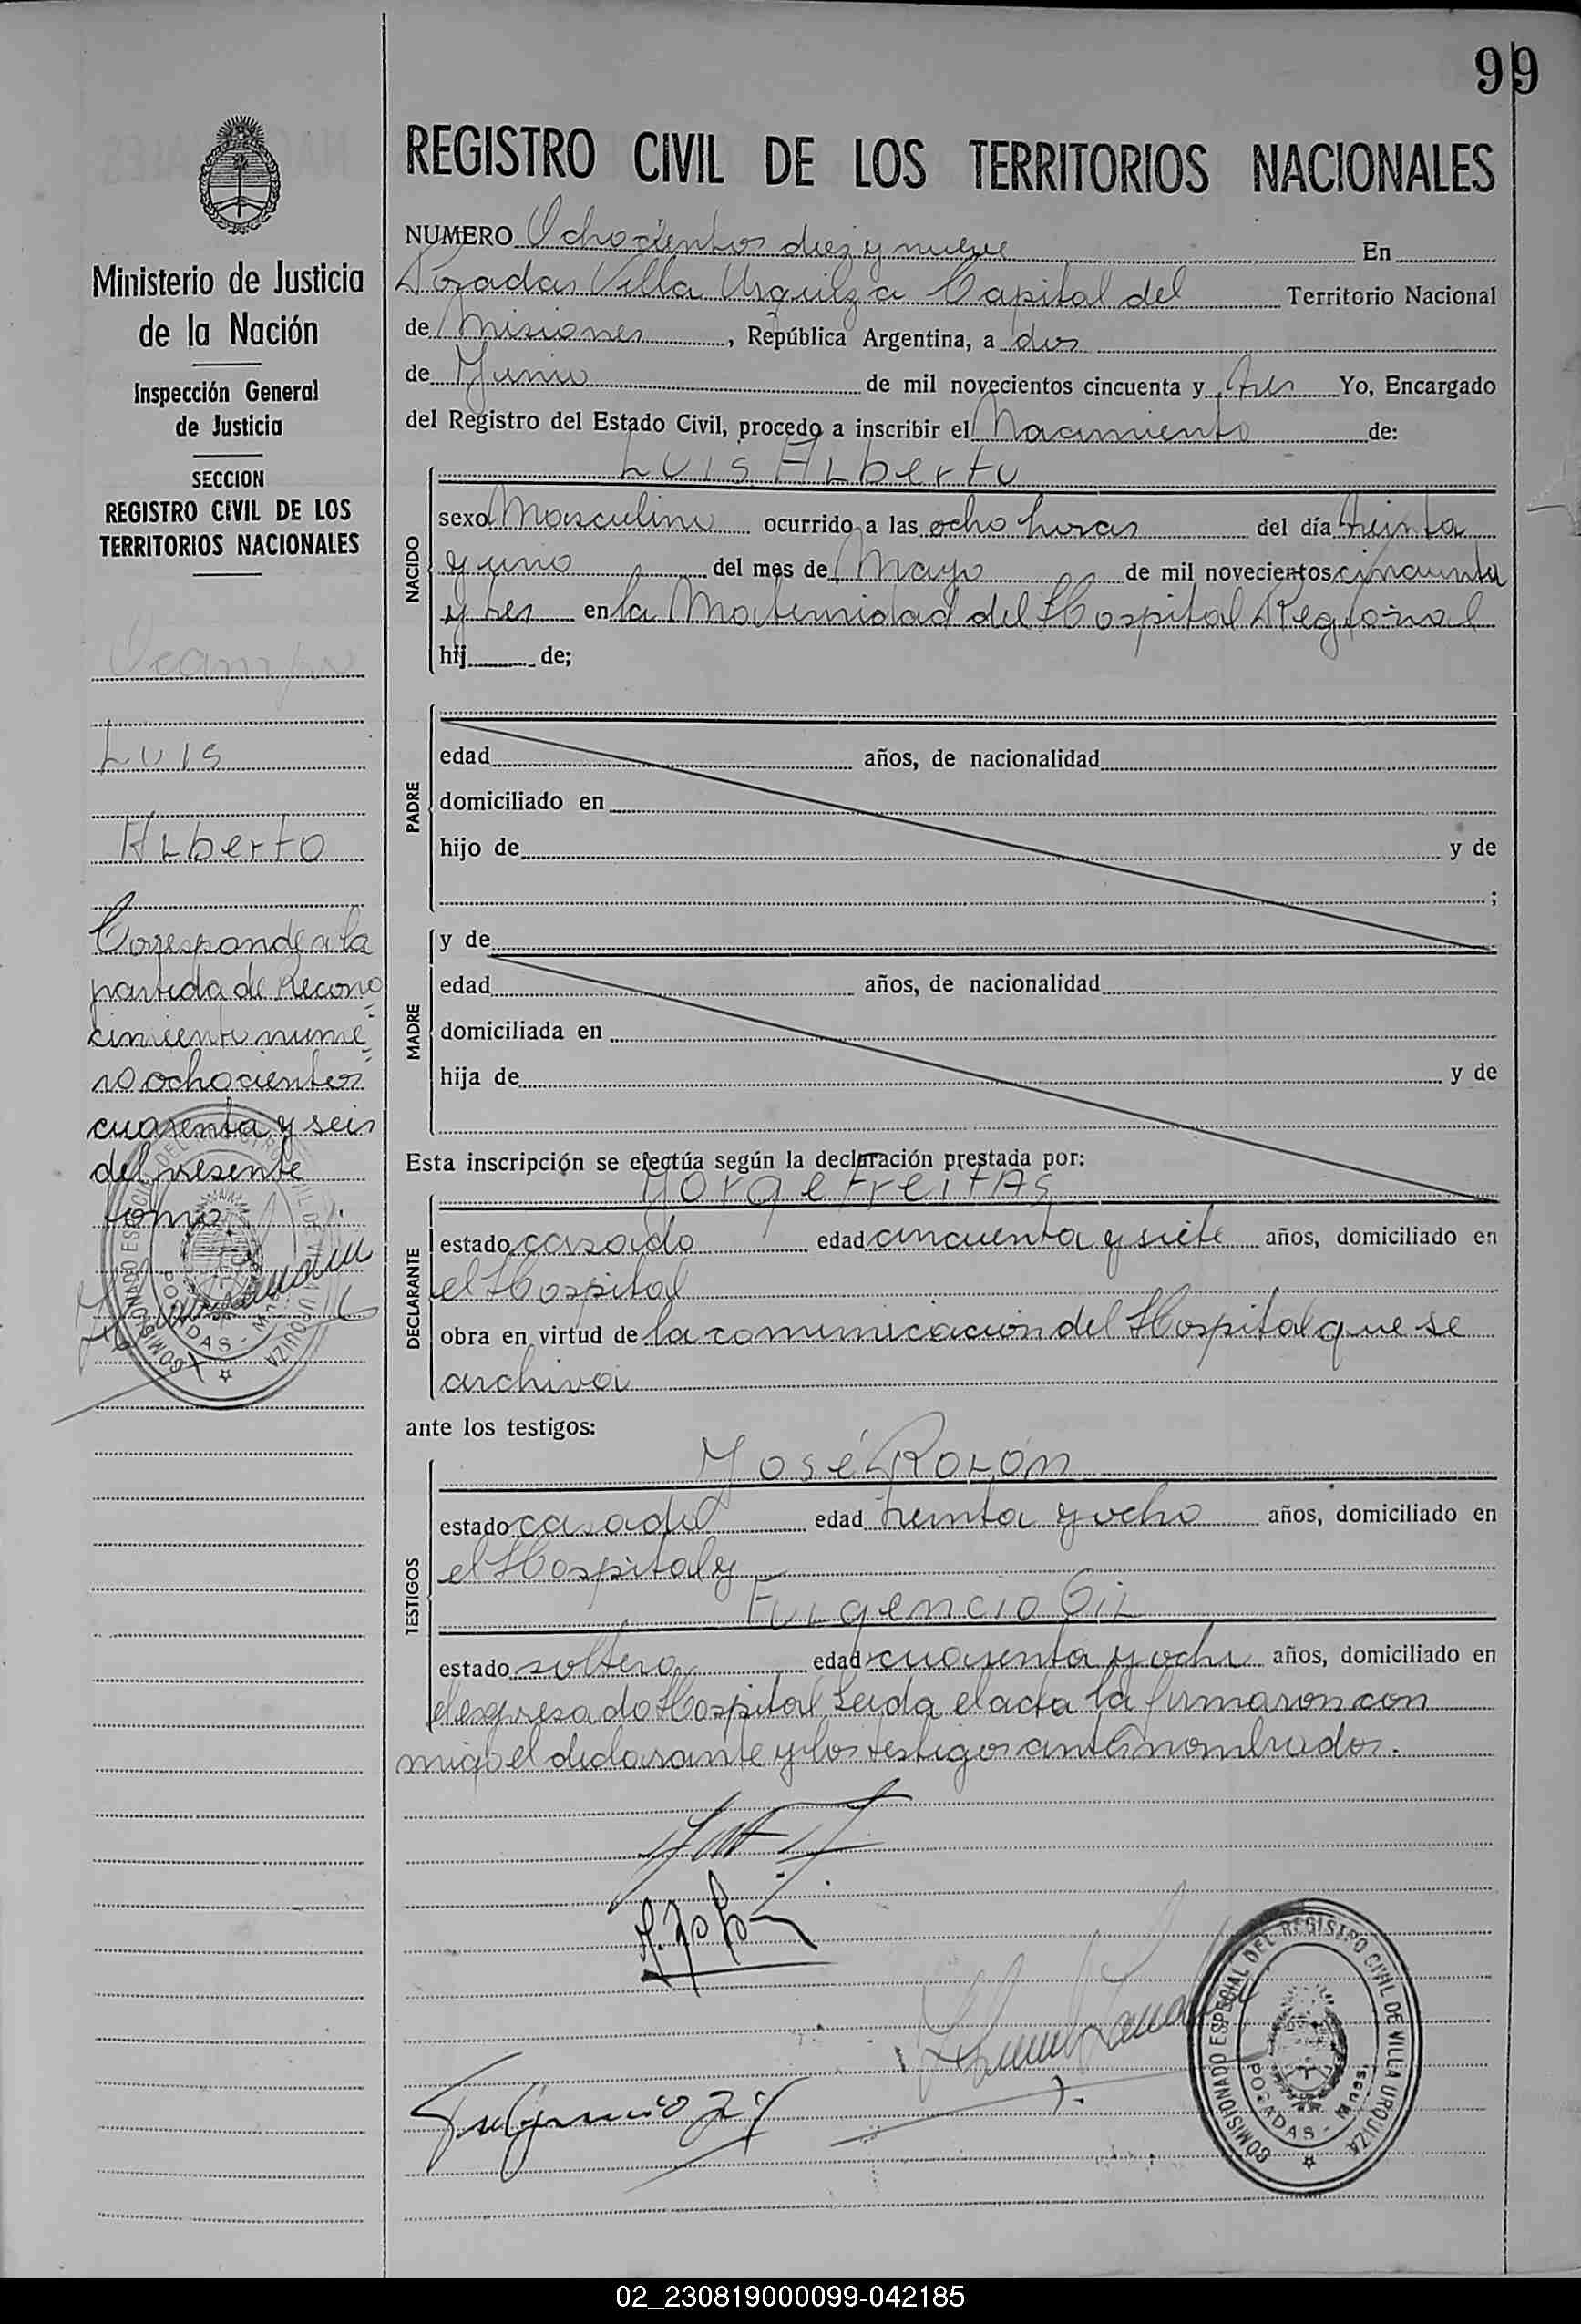 99
REGISTRO CIVIL DE LOS TERRITORIOS NACIONALES
Ministerio de Justicia
de la Nación
Inspección General
de Justicia
SECCION
REGISTRO CIVIL DE LOS
TERRITORIOS NACIONALES
Ocampo
Luis
Alberto
Corresponde a la
partida de recono
cimiento núme
ro ochocientos
cuarenta y seis
del presente
tomo
NUMERO Ochocientos diez y nueve En
Posadas Villa Urquiza Capital del Territorio Nacional
de Misiones, República Argentina, a dos
de Junio de mil novecientos cincuenta y tres Yo, Encargado
del Registro del Estado Civil, procedo a inscribir el Nacimiento de:
Luis Alberto
NACIDO
sexo Masculino ocurrido a las ocho horas del día treinta
y uno del mes de Mayo de mil novecientos cincuenta
y tres en la Maternidad del Hospital Regional
hij de;
PADRE
edad años, de nacionalidad
domiciliado en
hijo de y de
;
MADRE
y de
edad años, de nacionalidad
domiciliada en
hija de y de
Esta inscripción se efectúa según la declaración prestada por:
Jorge Freitas
DECLARANTE
estado casado edad cincuenta y siete años, domiciliado en
el Hospital
obra en virtud de la comunicacion del Hospital que se
archiva
ante los testigos:
José Rolón
TESTIGOS
estado casado edad treinta y ocho años, domiciliado en
el Hospital y
Fulgencio Gil
estado soltero edad cuarenta y ocho años, domiciliado en
el expresado Hospital Leida el acta la firmaron con
migo el declarante y los testigos antes nombrados.
Fulgencio Gil
COMISIONADO ESPECIAL DEL REGISTRO CIVIL DE VILLA URQUIZA
POSADAS - Mnes.
02_230819000099-042185